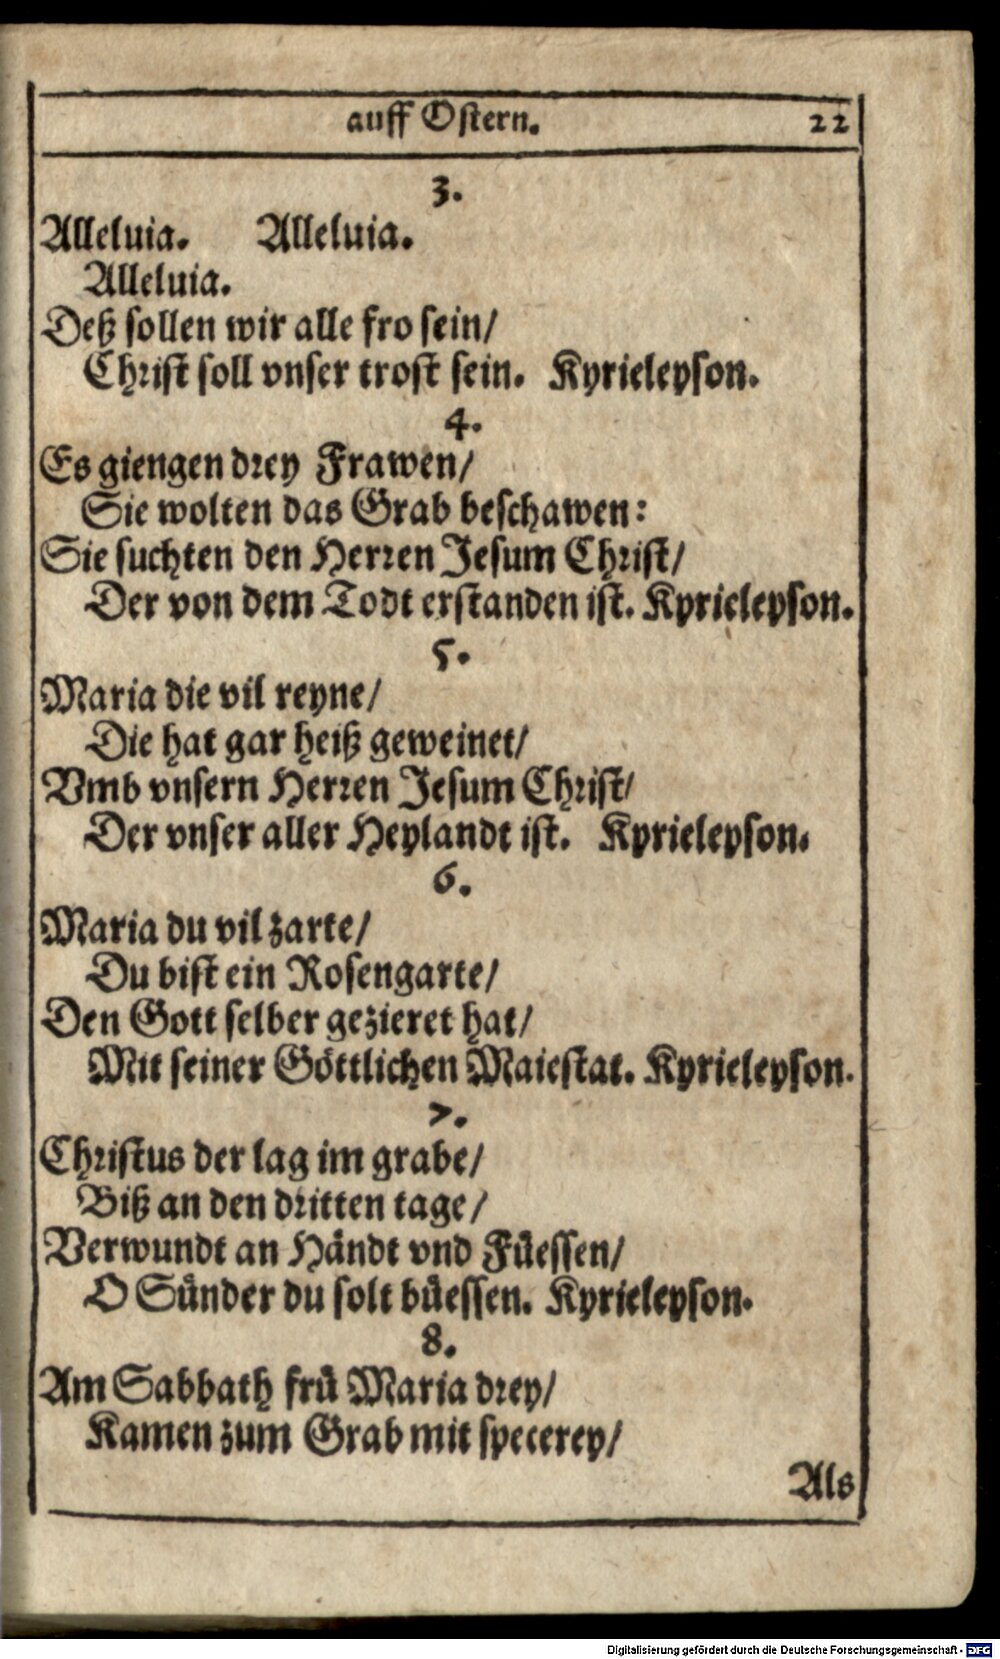 auff Ostern. 22
3.
Alleluia. Alleluia.
Alleluia.
Deß sollen wir alle fro sein/
Christ soll vnser trost sein. Kyrieleyson.
4.
Es giengen drey Frawen/
Sie wolten das Grab beschawen:
Sie suchten den Herren Jesum Christ/
Der von dem Todt erstanden ist. Kyrieleyson.
5.
Maria die vil reyne/
Die hat gar heiß geweinet/
Vmb vnsern Herren Jesum Christ/
Der vnser aller Heylandt ist. Kyrieleyson.
6.
Maria du vil zarte/
Du bist ein Rosengarte/
Den Gott selber gezieret hat/
Mit seiner Göttlichen Maiestat. Kyrieleyson.
7.
Christus der lag im grabe/
Biß an den dritten tage/
Verwundt an Händt vnd Füessen/
O Sünder du solt büessen. Kyrieleyson.
8.
Am Sabbath frü Maria drey/
Kamen zum Grab mit specerey/
Als
Digitalisierung gefördert durch die Deutsche Forschungsgemeinschaft - DFG